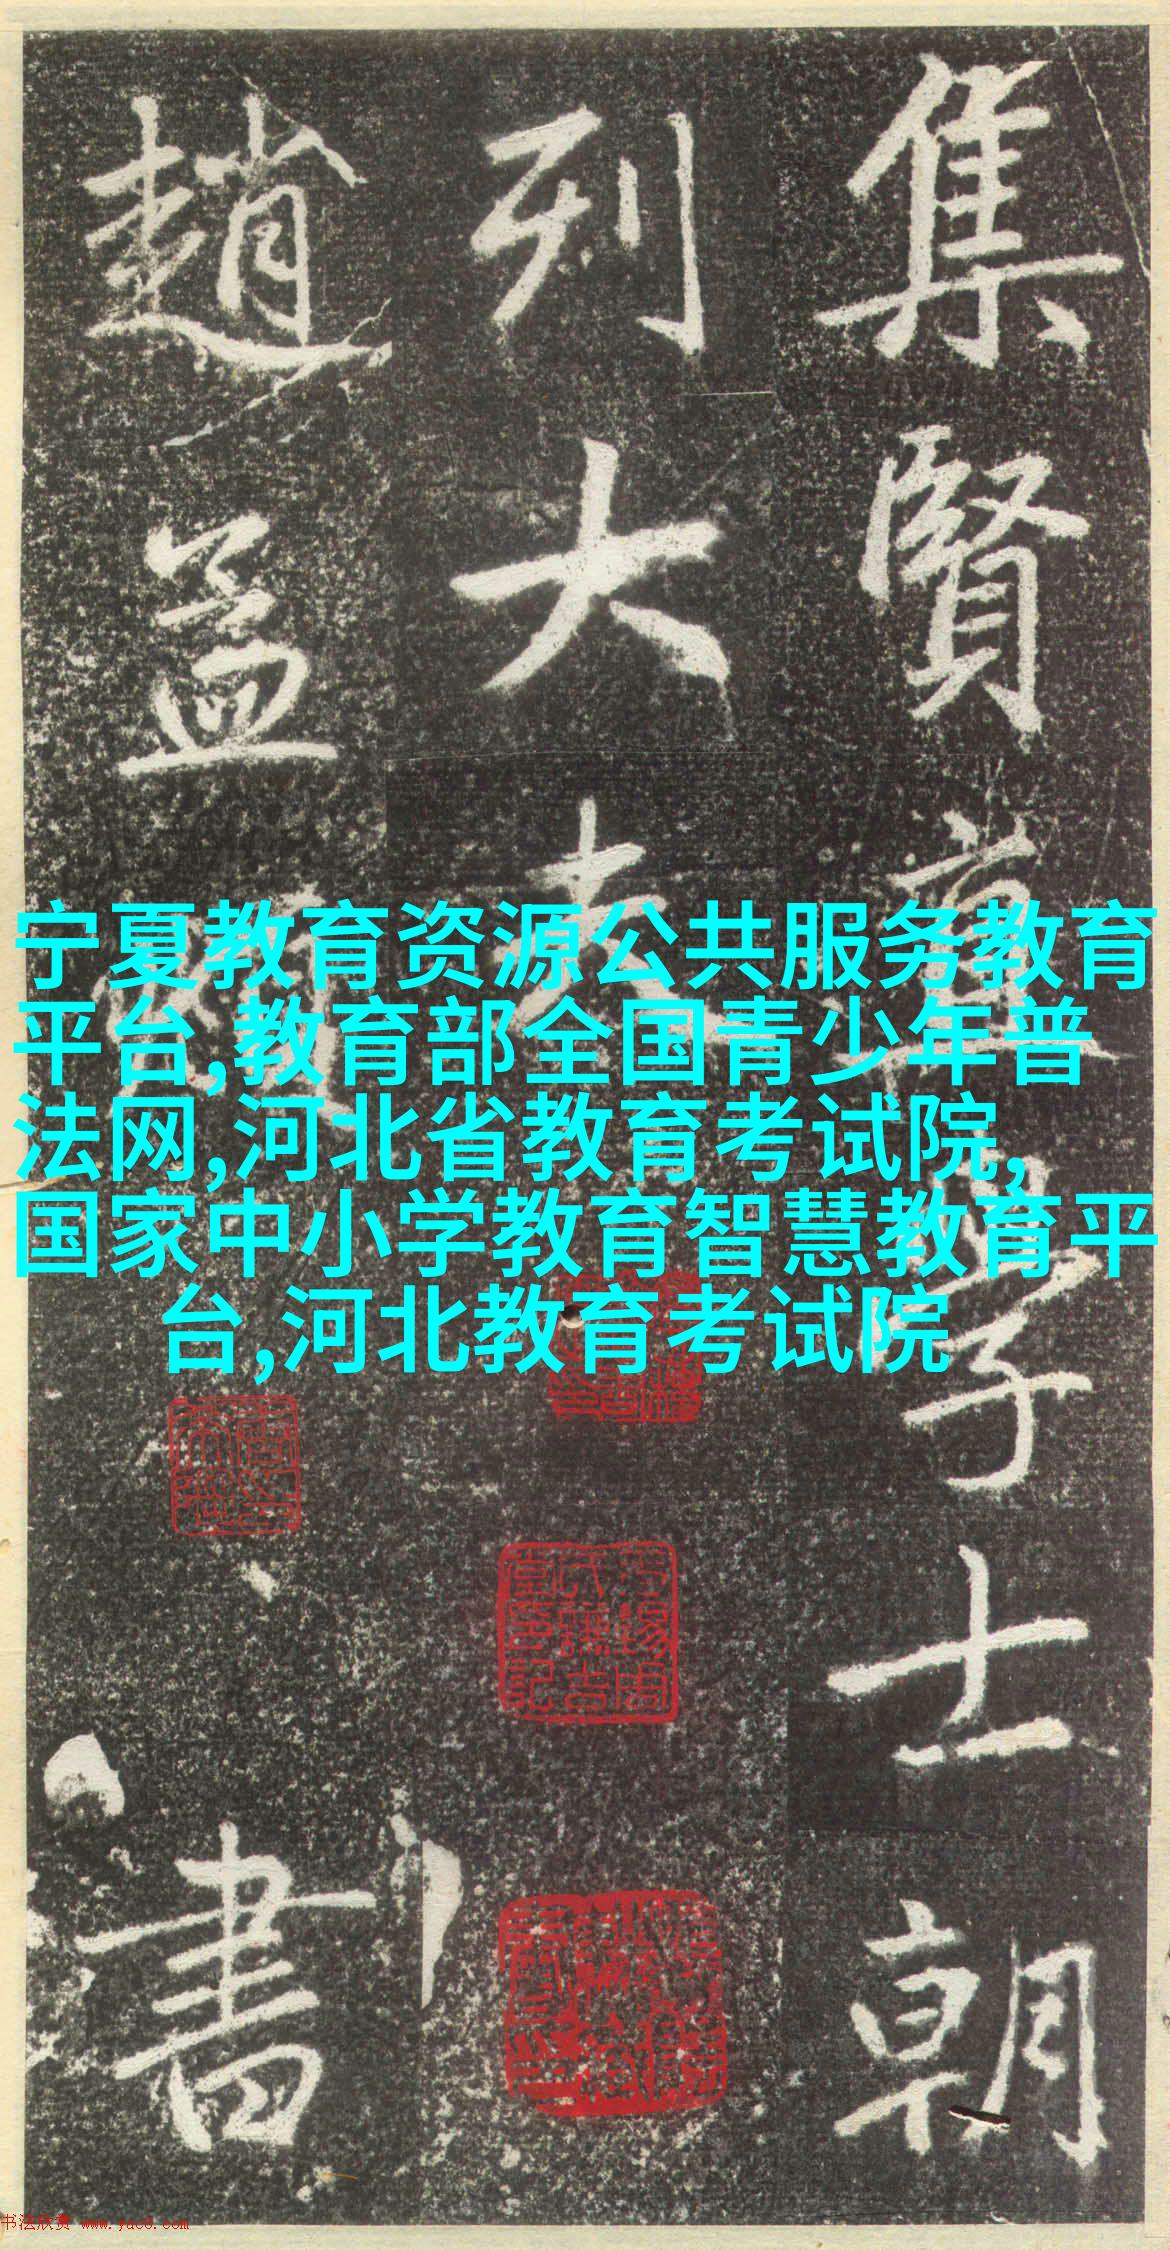 集賢直學士朝
列大夫
趙孟頫書
宁夏教育资源公共服务教育
平台,教育部全国青少年普
法网,河北省教育考试院,
国家中小学教育智慧教育平
台,河北教育考试院
书法欣赏 www.yac8.com